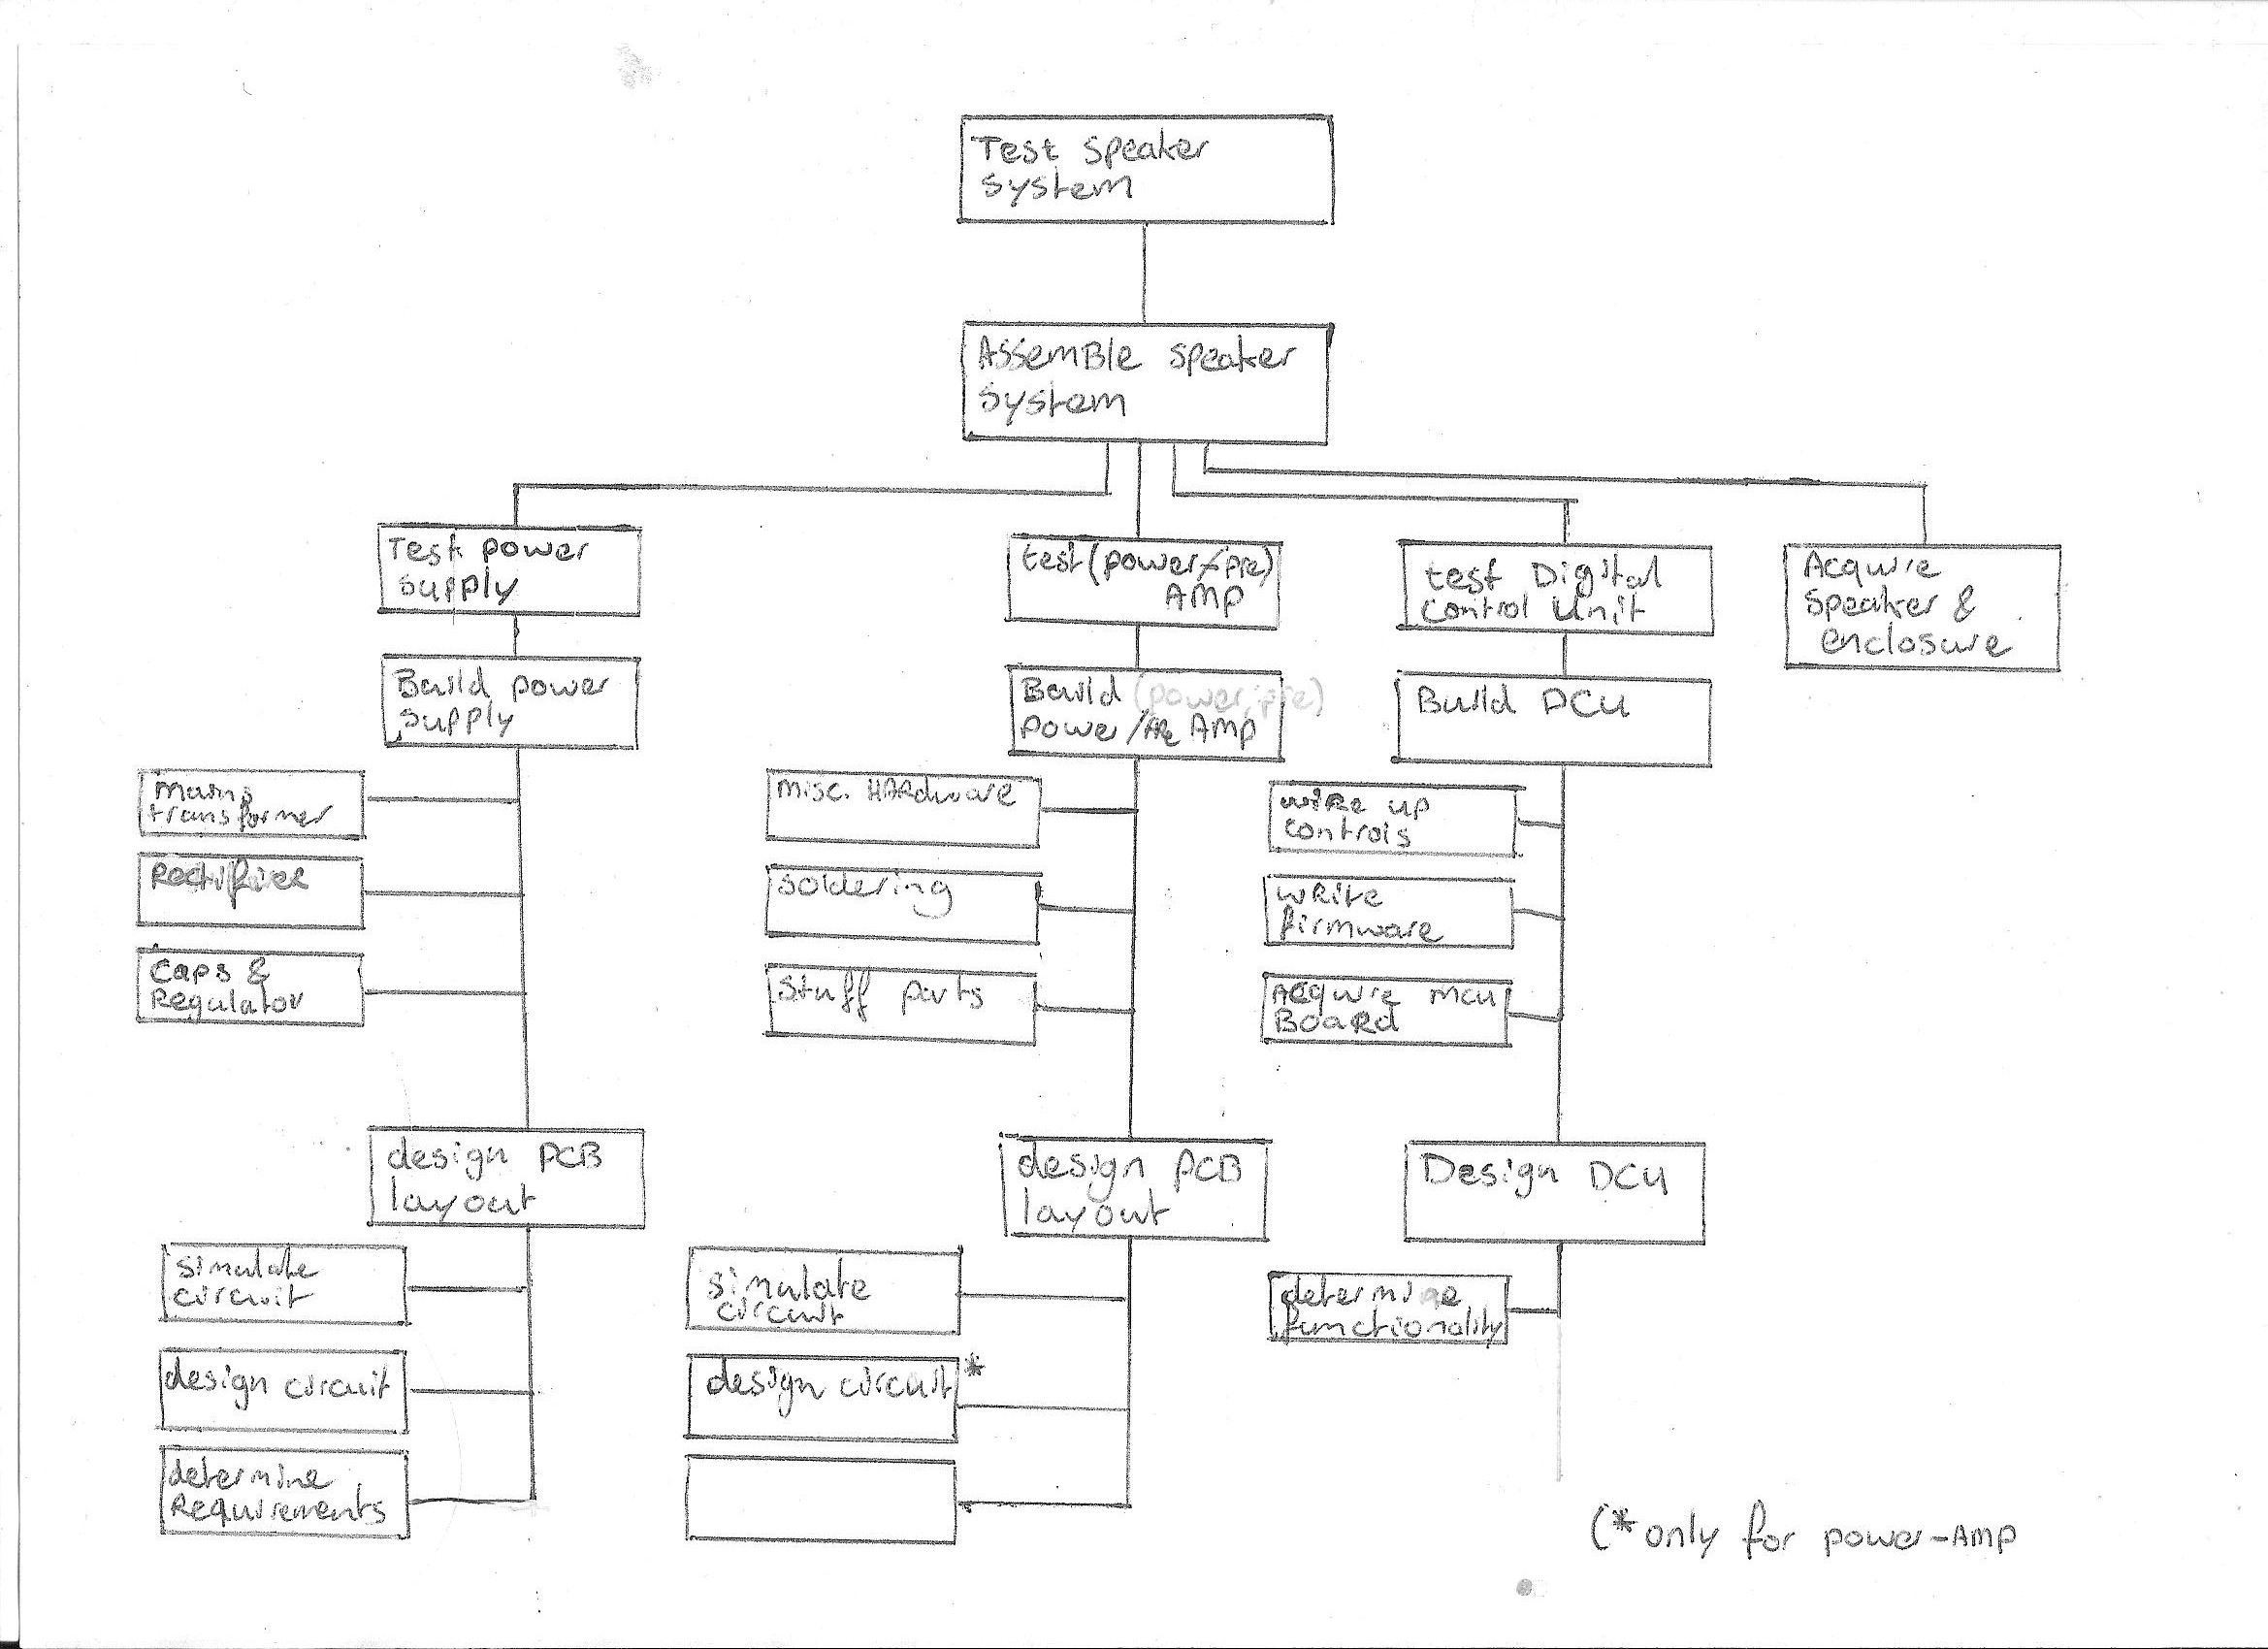 Test speaker
system
Assemble speaker
system
Test power
supply
Build power
supply
mains
transformer
Rectifier
Caps &
Regulator
design PCB
layout
simulate
circuit
design circuit
determine
Requirements
test (power/pre)
AMP
Build (power, pre)
power/pre AMP
misc. HARdware
soldering
stuff parts
design PCB
layout
simulate
circuit
design circuit *
test Digital
Control Unit
Build DCU
wire up
controls
write
firmware
Acquire mcu
Board
Design DCU
determine
functionality
Acquire
speaker &
enclosure
(* only for power-AMP